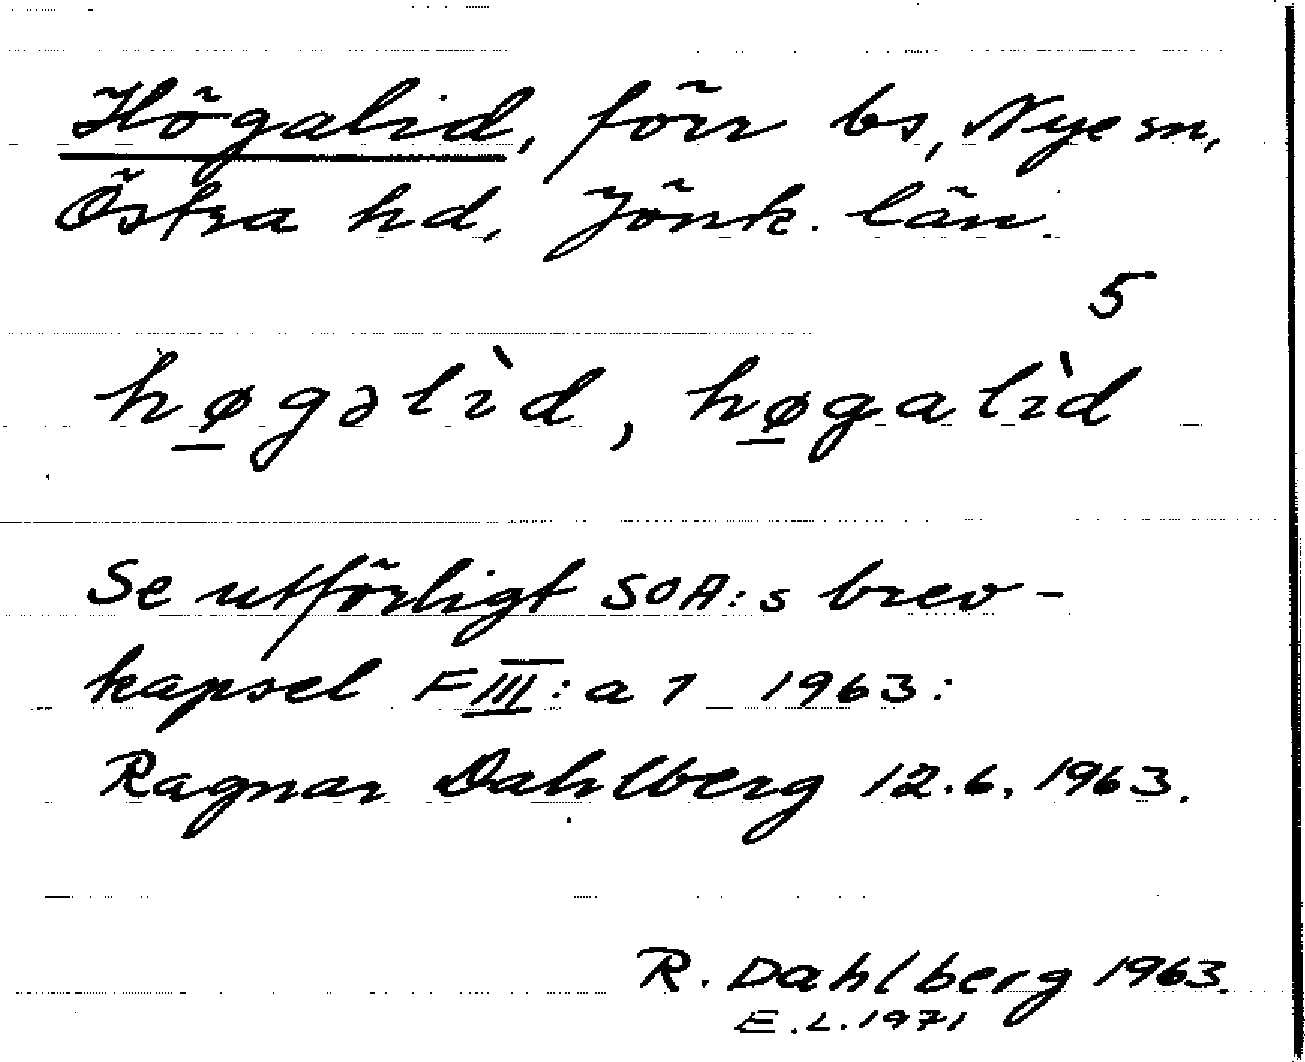 Högalid, förr bs, Nye sn,
Östra hd, Jönk. län.
5
høgəlìd, høgalìd
Se utförligt SOA:s brev-
kapsel FIII: a 1 1963:
Ragnar Dahlberg 12.6.1963.
R. Dahlberg 1963.
E.L.1971